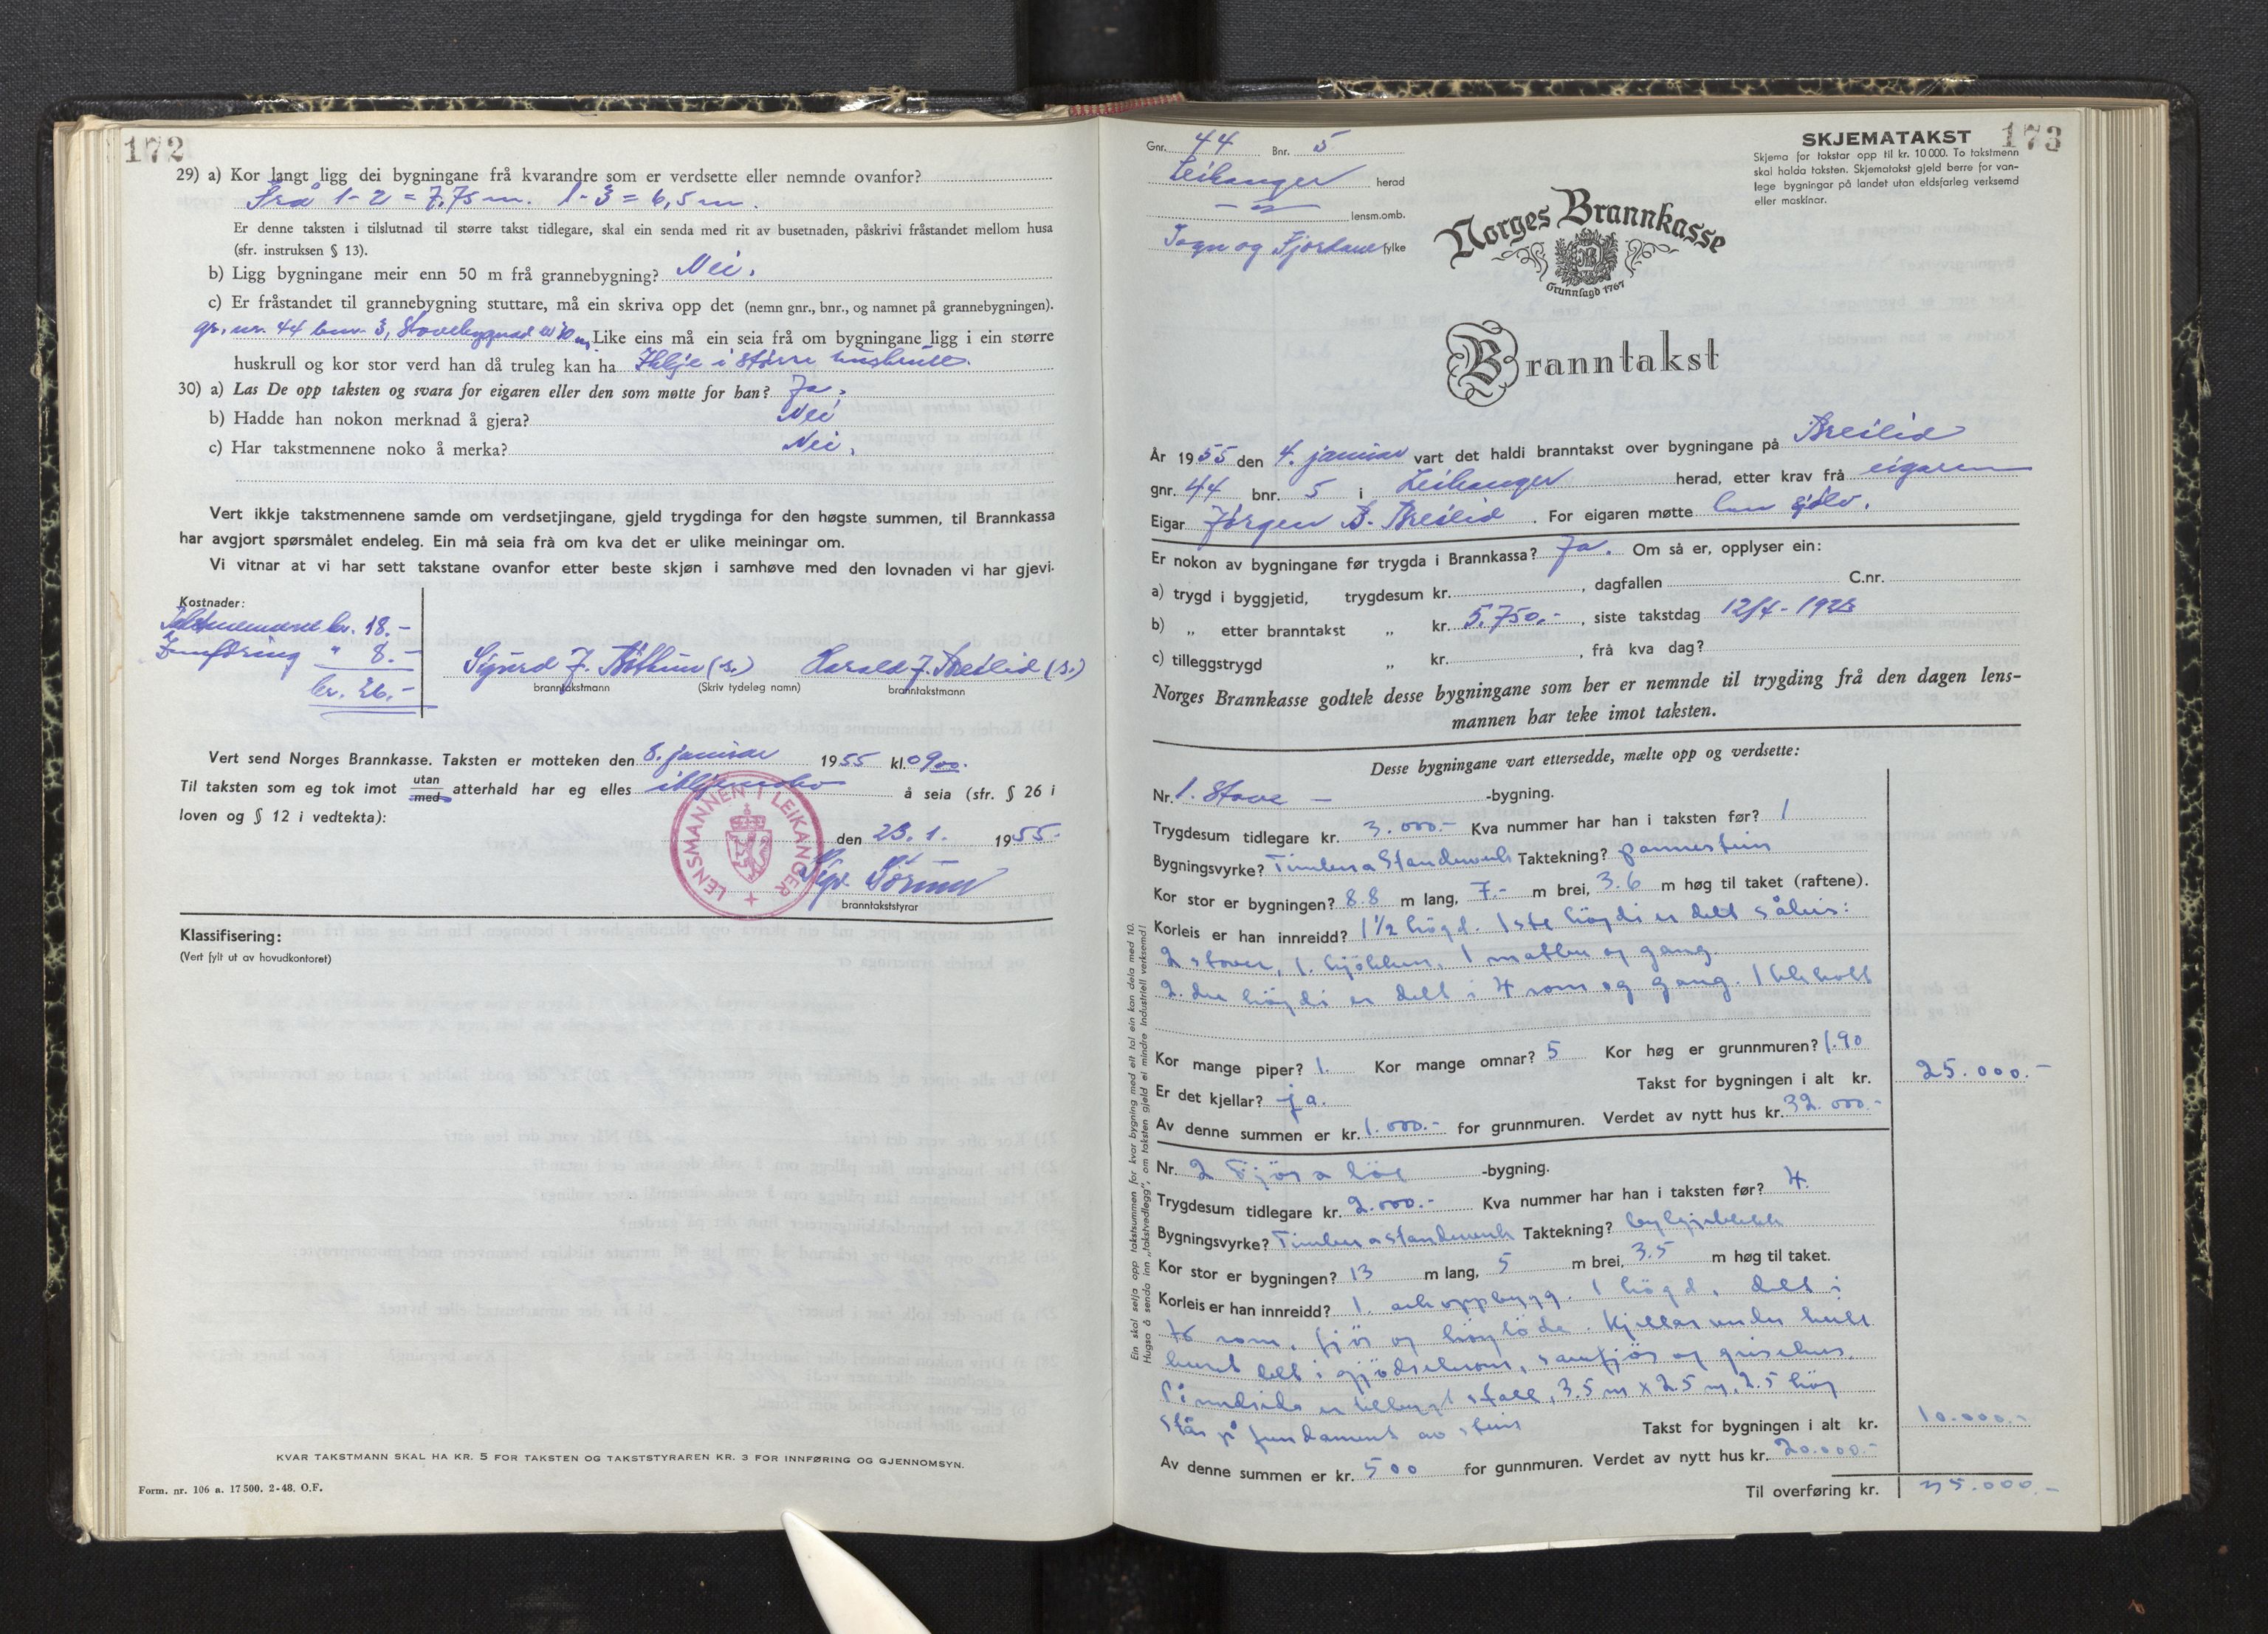 172
29) a) Kor langt ligg dei bygningane frå kvarandre som er verdsette eller nemnde ovanfor?
Frå 1-2 = 7,75 m. 1-3 = 6,5 m.
Er denne taksten i tilslutnad til større takst tidlegare, skal ein senda med rit av busetnaden, påskrivi fråstandet mellom husa
(sfr. instruksen § 13).
b) Ligg bygningane meir enn 50 m frå grannebygning? Nei.
c) Er fråstandet til grannebygning stuttare, må ein skriva opp det (nemn gnr., bnr., og namnet på grannebygningen).
gr. nr. 44 bnr. 3, Stovebygnad 10 m. Like eins må ein seia frå om bygningane ligg i ein større
huskrull og kor stor verd han då truleg kan ha Ikkje i større huskrull.
30) a) Las De opp taksten og svara for eigaren eller den som møtte for han? Ja.
b) Hadde han nokon merknad å gjera? Nei
c) Har takstmennene noko å merka? Nei.
Vert ikkje takstmennene samde om verdsetjingane, gjeld trygdinga for den høgste summen, til Brannkassa
har avgjort spørsmålet endeleg. Ein må seia frå om kva det er ulike meiningar om.
Vi vitnar at vi har sett takstane ovanfor etter beste skjøn i samhøve med den lovnaden vi har gjevi.
Kostnader:
Takstmennene kr. 18.-
Innføring " 8.-
kr. 26.-
Sigurd J. (s.) Harald J. Breilid (s.)
branntakstmann (Skriv tydeleg namn) branntakstmann
Vert send Norges Brannkasse. Taksten er motteken den 8. januar 1955 kl. 0900.
Til taksten som eg tok imot utan med atterhald har eg elles ikkje noko å seia (sfr. § 26 i
loven og § 12 i vedtekta):
LENSMANNEN I LEIKANGER
den 23.1. 1955.
branntakststyrar
Klassifisering:
(Vert fylt ut av hovudkontoret)
KVAR TAKSTMANN SKAL HA KR. 5 FOR TAKSTEN OG TAKSTSTYRAREN KR. 3 FOR INNFØRING OG GJENNOMSYN.
Form. nr. 106 a. 17 500. 2-48. O.F.
173
SKJEMATAKST
Skjema for takstar opp til kr. 10 000. To takstmenn
skal halda taksten. Skjematakst gjeld berre for van-
lege bygningar på landet utan eldsfarleg verksemd
eller maskinar.
Gnr. 44 Bnr. 5
Leikanger herad
lensm.omb.
Sogn og Fjordane fylke
Norges Brannkasse
Grunnlagd 1767
Branntakst
År 1955 den 4. januar vart det haldi branntakst over bygningane på Breilid
gnr. 44 bnr. 5 i Leikanger herad, etter krav frå eigaren
Eigar Jørgen B. Breilid. For eigaren møtte han sjølv.
Er nokon av bygningane før trygda i Brannkassa? Ja. Om så er, opplyser ein:
a) trygd i byggjetid, trygdesum kr. , dagfallen C.nr.
b) „ etter branntakst „ kr. 5.750.- , siste takstdag 12/4-
c) tilleggstrygd „ kr. , frå kva dag?
Norges Brannkasse godtek desse bygningane som her er nemnde til trygding frå den dagen lens-
mannen har teke imot taksten.
Desse bygningane vart ettersedde, mælte opp og verdsette:
Nr. 1. Stove - -bygning.
Trygdesum tidlegare kr. 3.000.- Kva nummer har han i taksten før? 1
Bygningsvyrke? Timbra standverk Taktekning? pannestein
Kor stor er bygningen? 8.8 m lang, 7.- m brei, 3.6 m høg til taket (raftene).
Korleis er han innreidd? 1½ högd. 1ste högdi er delt såleis:
2 stover, 1. kjökken, 1 matbu og gang.
2. dre högdi er delt i 4 rom og gang. 1
Kor mange piper? 1. Kor mange omnar? 5 Kor høg er grunnmuren? 1.90
Er det kjellar? ja. Takst for bygningen i alt kr. 25.000.-
Av denne summen er kr. 1.000.- for grunnmuren. Verdet av nytt hus kr. 32.000.-
Nr. 2 Fjös a lög -bygning.
Trygdesum tidlegare kr. 2.000.- Kva nummer har han i taksten før? 4.
Bygningsvyrke? Timbra standverk Taktekning? bylgjeblekk
Kor stor er bygningen? 13 m lang, 5 m brei, 3.5 m høg til taket.
Korleis er han innreidd? 1. ark oppbygg. 1 högd, delt i
rom, fjös og höylöda. Kjellar under heile
huset delt i gjödselrom, saufjös og grisehus.
På undsida er tilbygt stall, 3.5 m x 2.5 m, 2.5 hög
står på fundament av stein Takst for bygningen i alt kr. 10.000.-
Av denne summen er kr. 500 for gunnmuren. Verdet av nytt hus kr. 20.000.-
Til overføring kr. 35.000.-
Ein skal setja opp takstsummen for kvar bygning med eit tal ein kan dela med 10.
Hugsa å senda inn „takstvedlegg”, om taksten gjeld ei mindre industriell verksemd!